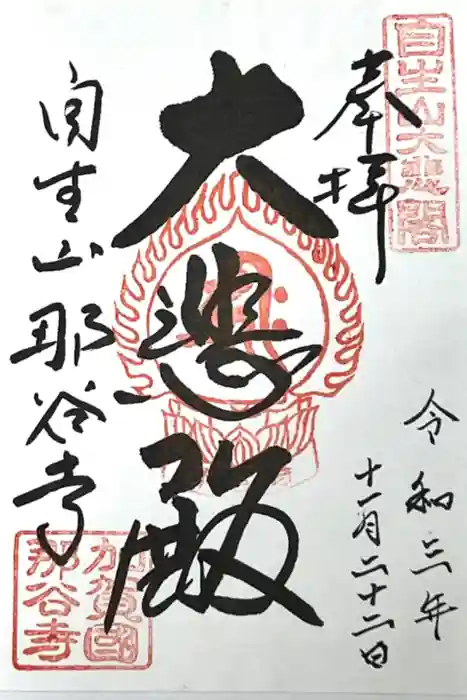 自生山大悲閣
奉拝
令和三年
十一月二十二日
大悲殿
自生山那谷寺
加賀國
那谷寺